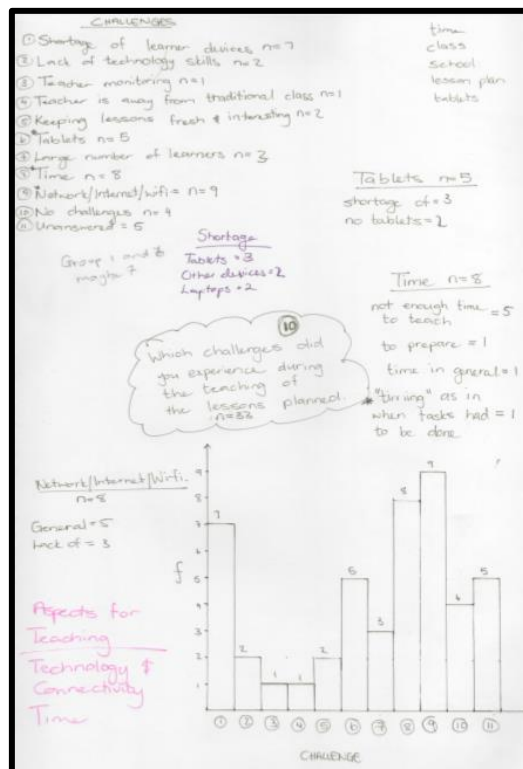 CHALLENGES
① Shortage of learner devices n=7
② Lack of technology skills n=2
③ Teacher monitoring n=1
④ Teacher is away from traditional class n=1
⑤ Keeping lessons fresh & interesting n=2
⑥ *Tablets n=5
⑦ Large number of learners n=3
⑧ *Time n=8
⑨ *Network/Internet/wifi= n=9
⑩ No challenges n=4
⑪ Unanswered = 5
time
class
school
lesson plan
tablets
Tablets n=5
shortage of = 3
no tablets = 2
Group 1 and 6
maybe 7
Shortage
Tablets = 3
Other devices = 2
Laptops = 2
Time n=8
not enough time = 5
to teach
to prepare = 1
time in general = 1
* "timing" as in
when tasks had = 1
to be done
⑩
Which challenges did
you experience during
the teaching of
the lessons planned.
n=33
Network/Internet/Wifi.
n=8
General = 5
Lack of = 3
Aspects for
Teaching
Technology &
Connectivity
Time
f
9
8
7
6
5
4
3
2
1
7
2
1
1
2
5
3
8
9
4
5
① ② ③ ④ ⑤ ⑥ ⑦ ⑧ ⑨ ⑩ ⑪
CHALLENGE